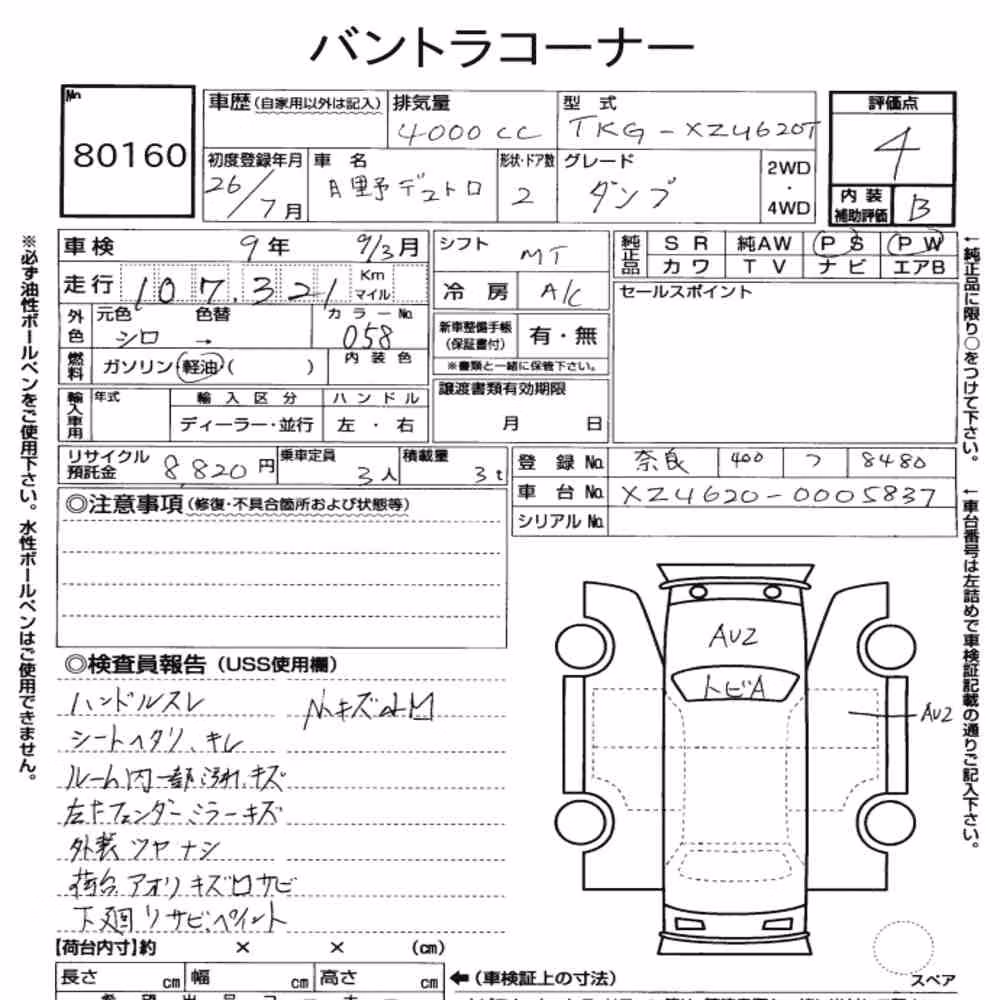 バントラコーナー
No
80160
車歴(自家用以外は記入)
排気量
4000cc
型 式
TKG-XZU620T
評価点
4
初度登録年月
26/7月
車 名
日野デュトロ
形状・ドア数
2
グレード
ダンプ
2WD
・
4WD
内 装
補助評価
B
車検
9年 9/3月
走行
107,321
Km
マイル
外色
元色
シロ
色替
→
カラーNo
058
燃料
ガソリン・軽油・( )
内 装 色
輸入車用
年式
輸 入 区 分
ディーラー・並行
ハ ン ド ル
左 ・ 右
シフト
MT
冷 房
A/C
新車整備手帳
(保証書付)
有・無
※書類と一緒に保管下さい。
譲渡書類有効期限
月 日
純正品
S R
純AW
P S
P W
カ ワ
T V
ナ ビ
エアB
セールスポイント
リサイクル
預託金
8,820円
乗車定員
3人
積載量
3t
登 録 No.
奈良
400
つ
8480
車 台 No.
XZU620-0005837
シリアル No.
◎注意事項(修復・不具合箇所および状態等)
◎検査員報告(USS使用欄)
ハンドルスレ
シートヘタリ、キレ
ルーム内一部汚れ、キズ
左右フェンダーミラーキズ
外装ツヤナシ
荷台アオリキズ凹サビ
下廻りサビ、ペイント
小キズ凹
AU2
トビA
AU2
スペア
【荷台内寸】約 × × (cm)
長さ cm
幅 cm
高さ cm
←(車検証上の寸法)
※必ず油性ボールペンをご使用下さい。水性ボールペンはご使用できません。
←純正品に限り○をつけて下さい。
←車台番号は左詰めで車検証記載の通りご記入下さい。